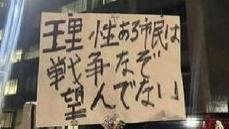 理性ある市民は
戦争なぞ
望んでない